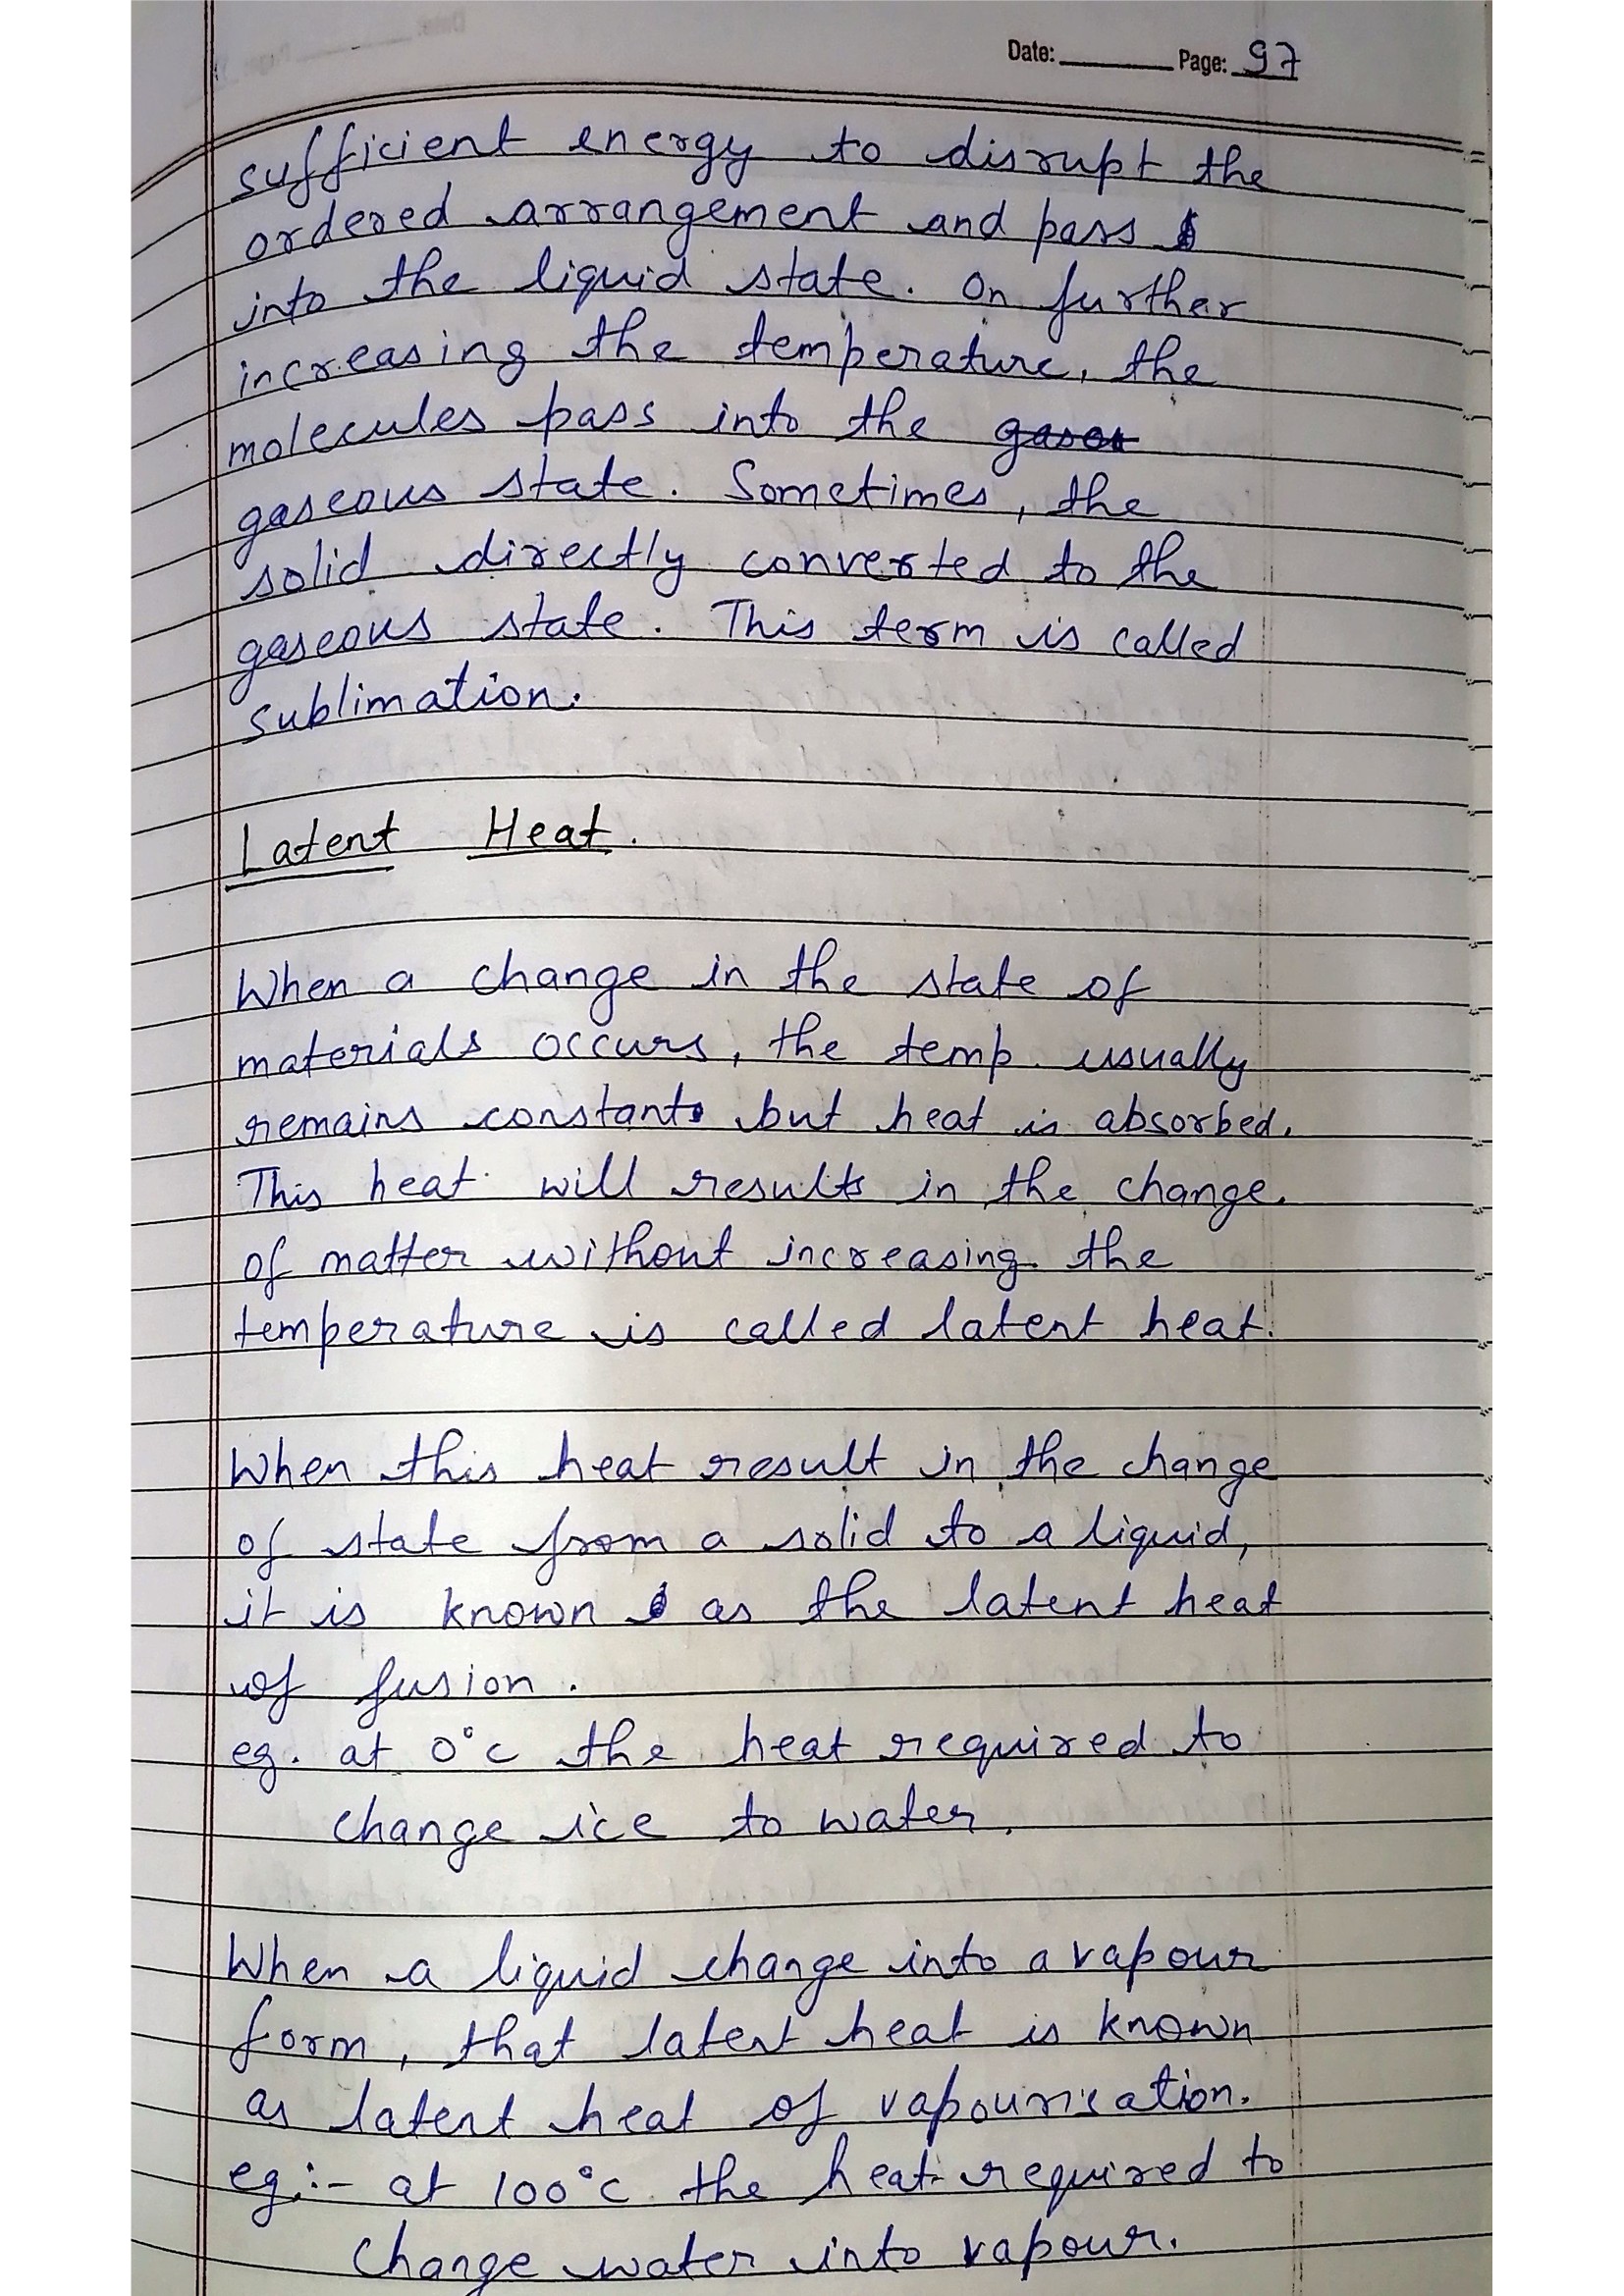 Date: Page: 97
sufficient energy to disrupt the
ordered arrangement and pass
into the liquid state. On further
increasing the temperature, the
molecules pass into the gases
gaseous state. Sometimes, the
solid directly converted to the
gaseous state. This term is called
sublimation.
Latent Heat.
When a change in the state of
materials occurs, the temp. usually
remains constant but heat is absorbed.
This heat will results in the change.
of matter without increasing the
temperature is called latent heat.
When this heat result in the change
of state from a solid to a liquid,
it is known as the latent heat
of fusion.
eg. at 0°c the heat required to
change ice to water.
When a liquid change into a vapour
form, that latent heat is known
as latent heat of vapourisation.
eg:- at 100°c the heat required to
change water into vapour.